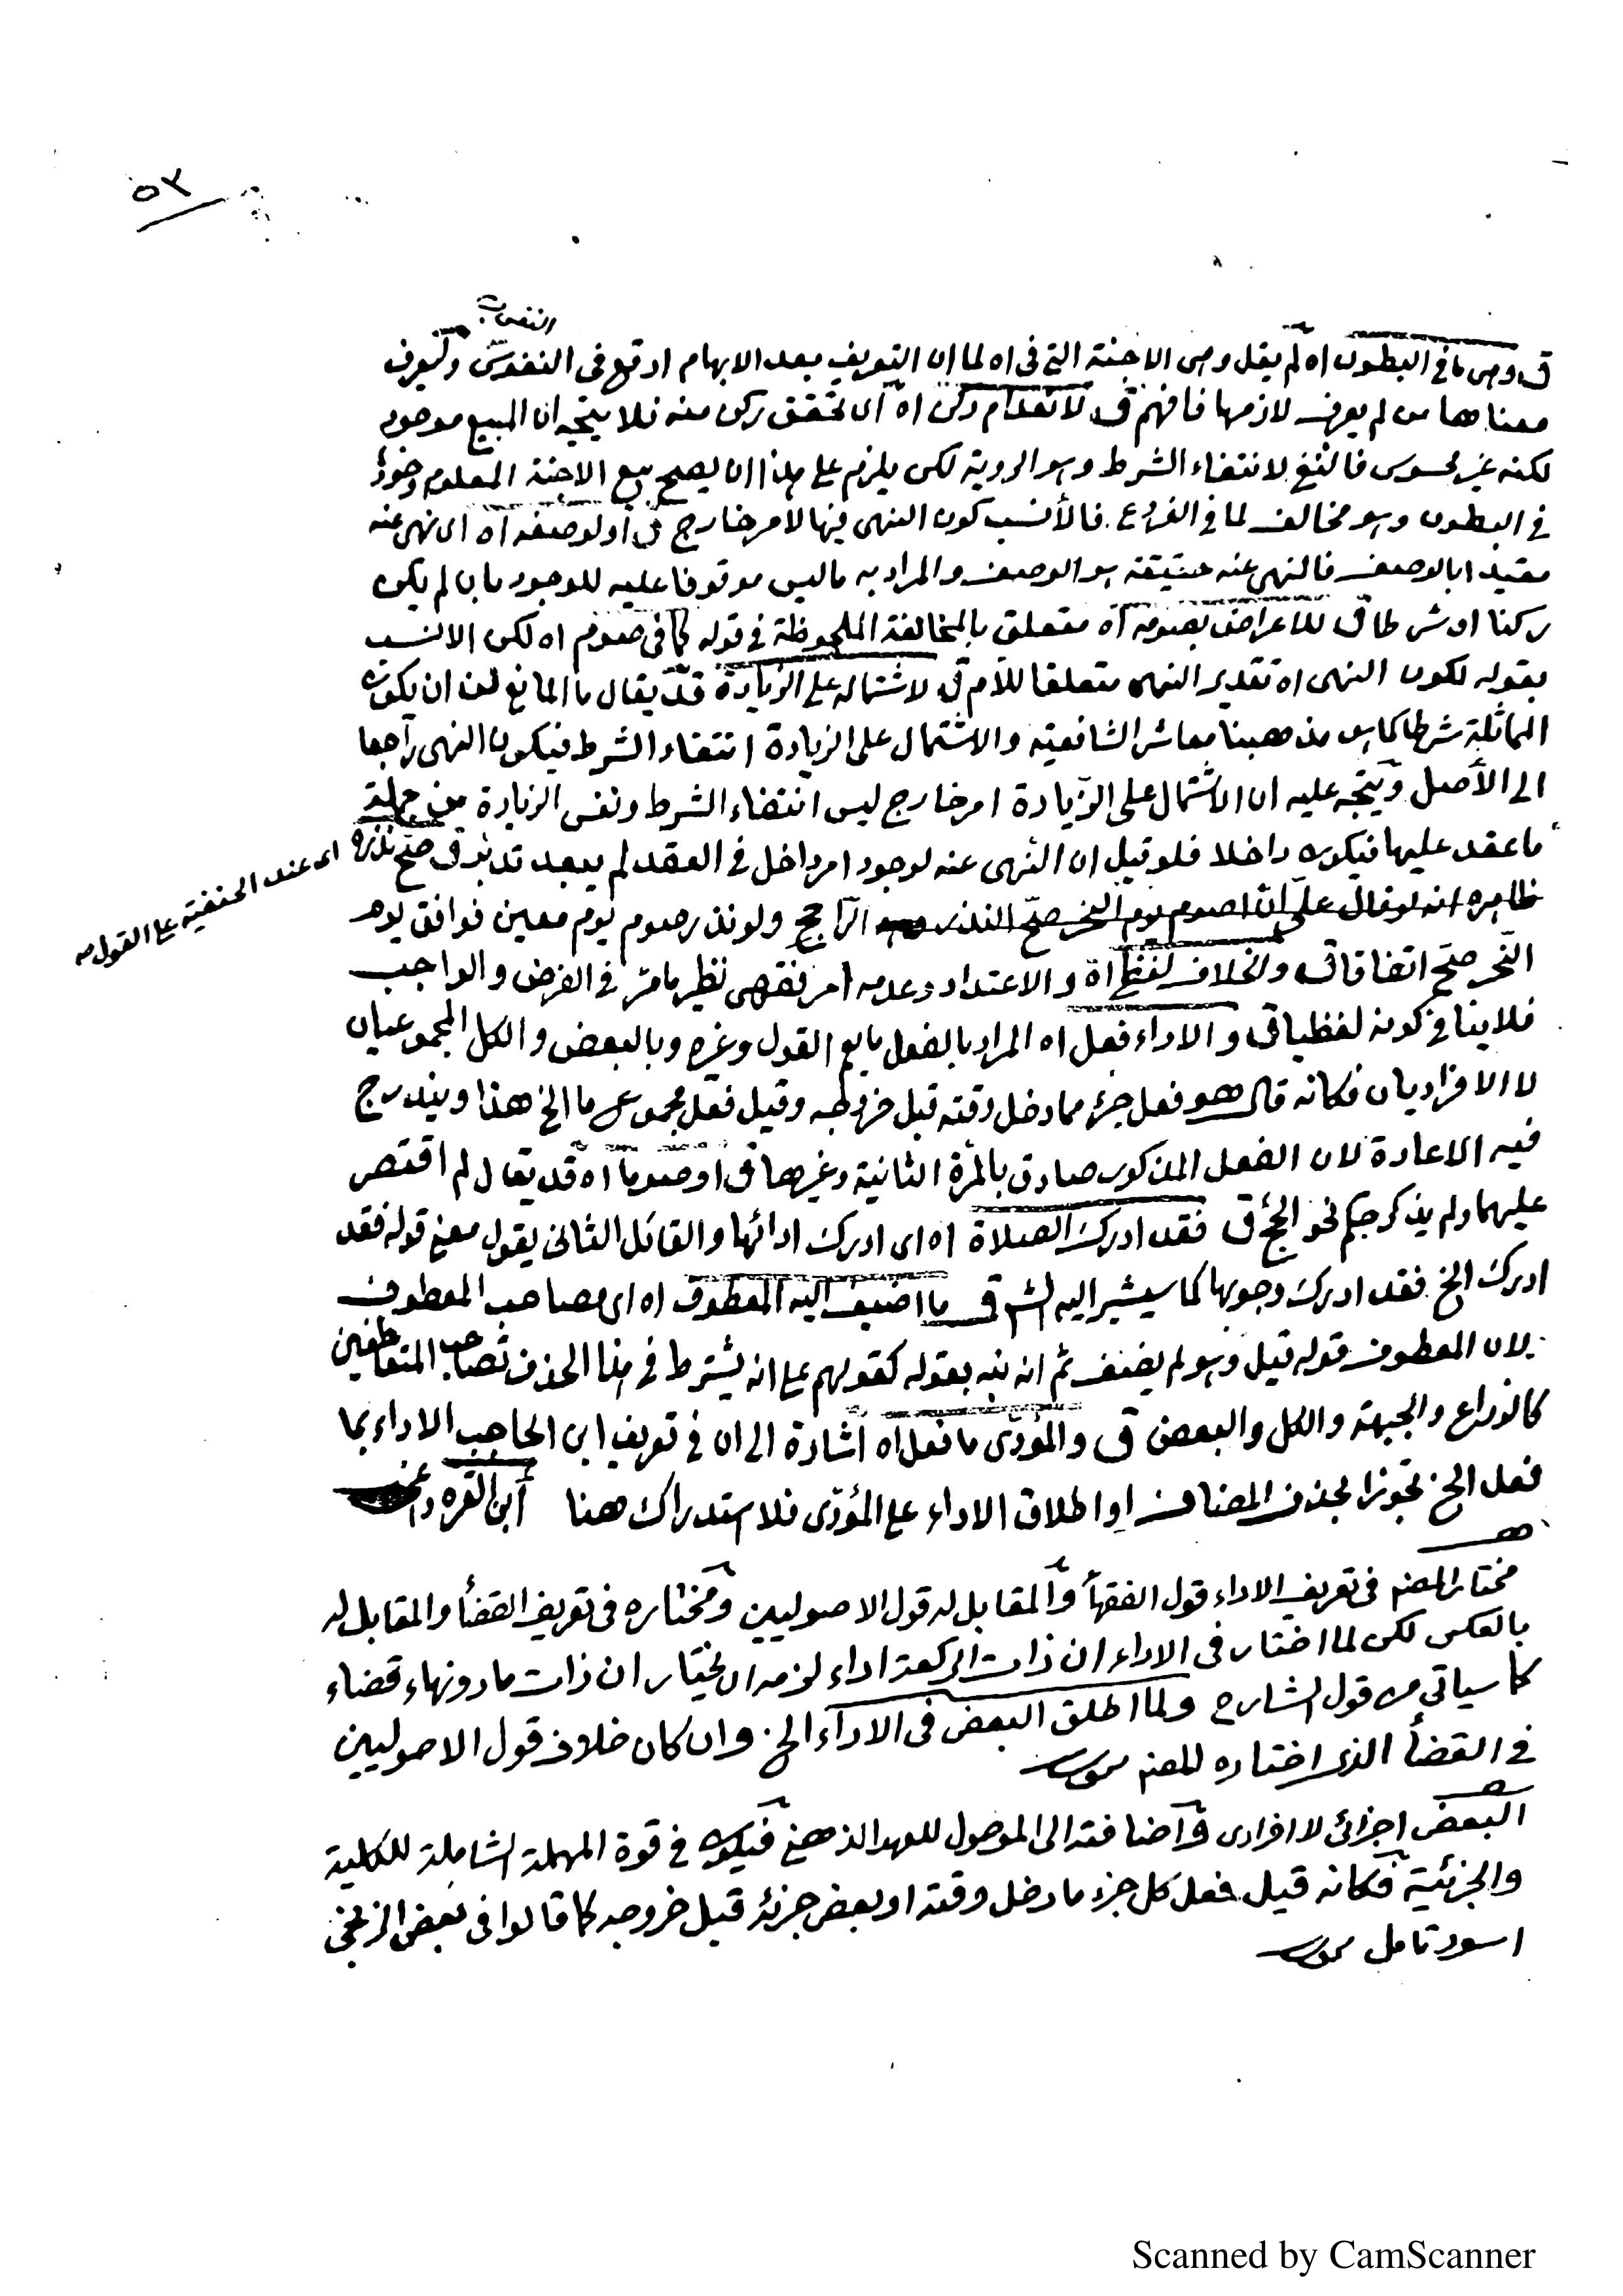 ٥٣
ق وهى ما فى البطون اه لم يقل وهى الاجنة التى فى اه لما ان التعريف بعد الابهام اوقع فى النفوس وليعرف
معناها من لم يعرف لازمها فافهم ق لانعدام ركن اه اى تحقق ركن منه فلا يتجه ان المبيع موجود
لكنه غير محسوس فالنفى لانتفاء الشرط وهو الروية لكن يلزم على هذا ان يصح بيع الاجنة المعلوم وجودُ
فى البطون وهو مخالف لما فى الفروع فالأنسب كون النهى فيها لامر خارج ق او لوصفه اه اى نهى عنه
مقيدا بالوصف فالنهى عنه حقيقة هو الوصف والمراد به ما ليس موقوفا عليه للوجود بان لم يكن
ركنا او شرطا ق للاعراض بصومه اه متعلق بالمخالفة الملحوظة فى قوله كما فى صوم اه لكن الانسب
بقوله لكون النهى اه تقدير النهى متعلقا للام ق لاشتماله على الزيادة قد يقال ما المانع من ان يكون
المماثلة شرطا كما هو مذهبنا معاشر الشافعية والاشتمال على الزيادة انتفاء الشرط فيكون النهى راجعا
الى الأصل ويتجه عليه ان الاشتمال على الزيادة امر خارج ليس انتفاء الشرط ونفس الزيادة من جملة
ما عقد عليها فيكون داخلا فلو قيل ان النهى عنه لوجود امر داخل فى العقد لم يبعد تدبر ق صح نذره
اى عند الحنفية على القول
ظاهره انه لو قال على ان اصوم يوم النحر صح النذر وهو الراجح ولو نذر صوم يوم معين فوافق يوم
النحر صح اتفاقا ق والخلاف لفظى اه والاعتداد وعدمه امر فقهى نظير ما مر فى الفرض والواجب
فلا ينافى كونه لفظيا ق والاداء فعل اه المراد بالفعل ما يعم القول وغيره وبالبعض والكل المجموعيان
لا الافراديان فكانه قال هو فعل جزء مما دخل وقته قبل خروجه وقيل فعل مجموع ما الخ هذا ويندرج
فيه الاعادة لان الفعل المذكور صادق بالمرة الثانية وغيرها ق او صوما اه قد يقال لم اقتصر
عليهما ولم يذكر حكم نحو الحج ق فقد ادرك الصلاة اه اى ادرك ادائها والقائل الثانى يقول معنى قوله فقد
ادرك الخ فقد ادرك وجوبها كما سيشير اليه الش ق ما اضيف اليه المعطوف اه اى مصاحب المعطوف
لان المعطوف قوله قيل وهو لم يضف ثم انه نبه بقوله كقولهم على انه يشترط فى هذا الحذف تصاحب المتعاطفين
كالذراع والجبهة والكل والبعض ق والمؤدى ما فعل اه اشارة الى ان فى تعريف ابن الحاجب الاداء بما
فعل الخ تجوزا بحذف المضاف او اطلاق الاداء على المؤدى فلا استدراك هنا ابن القره داغى
مختار المصنف فى تعريف الاداء قول الفقهأ والمقابل له قول الاصوليين ومختاره فى تعريف القضأ والمقابل له
بالعكس لكن لما اختار فى الاداء ان ذات الركعة اداء لزمه ان يختار ان ذات ما دونهاء قضاء
كما سياتى من قول الشارح ولما اطلق البعض فى الاداء الخ وان كان خلاف قول الاصوليين
فى القضأ الذى اختاره المصنف
البعض اجزائى لا افرادى واضافته الى الموصول للعهد الذهنى فيكون فى قوة المهملة الشاملة للكلية
والجزئية فكانه قيل فعل كل جزء ما دخل وقته او بعض جزئه قبل خروجه كما قالوا فى بعض الزنجى
اسود تامل
Scanned by CamScanner